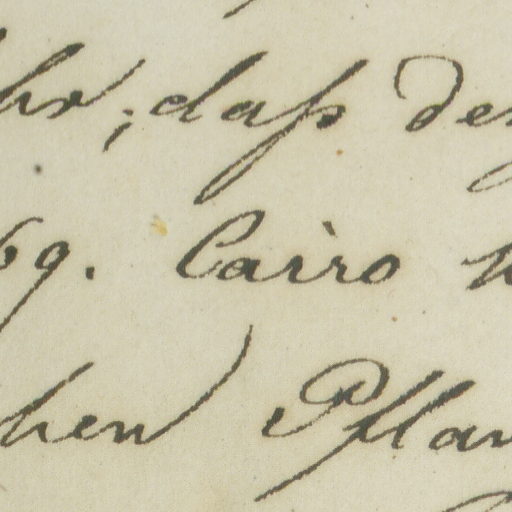 hr, daß de
69. Cairo
hen Pflan